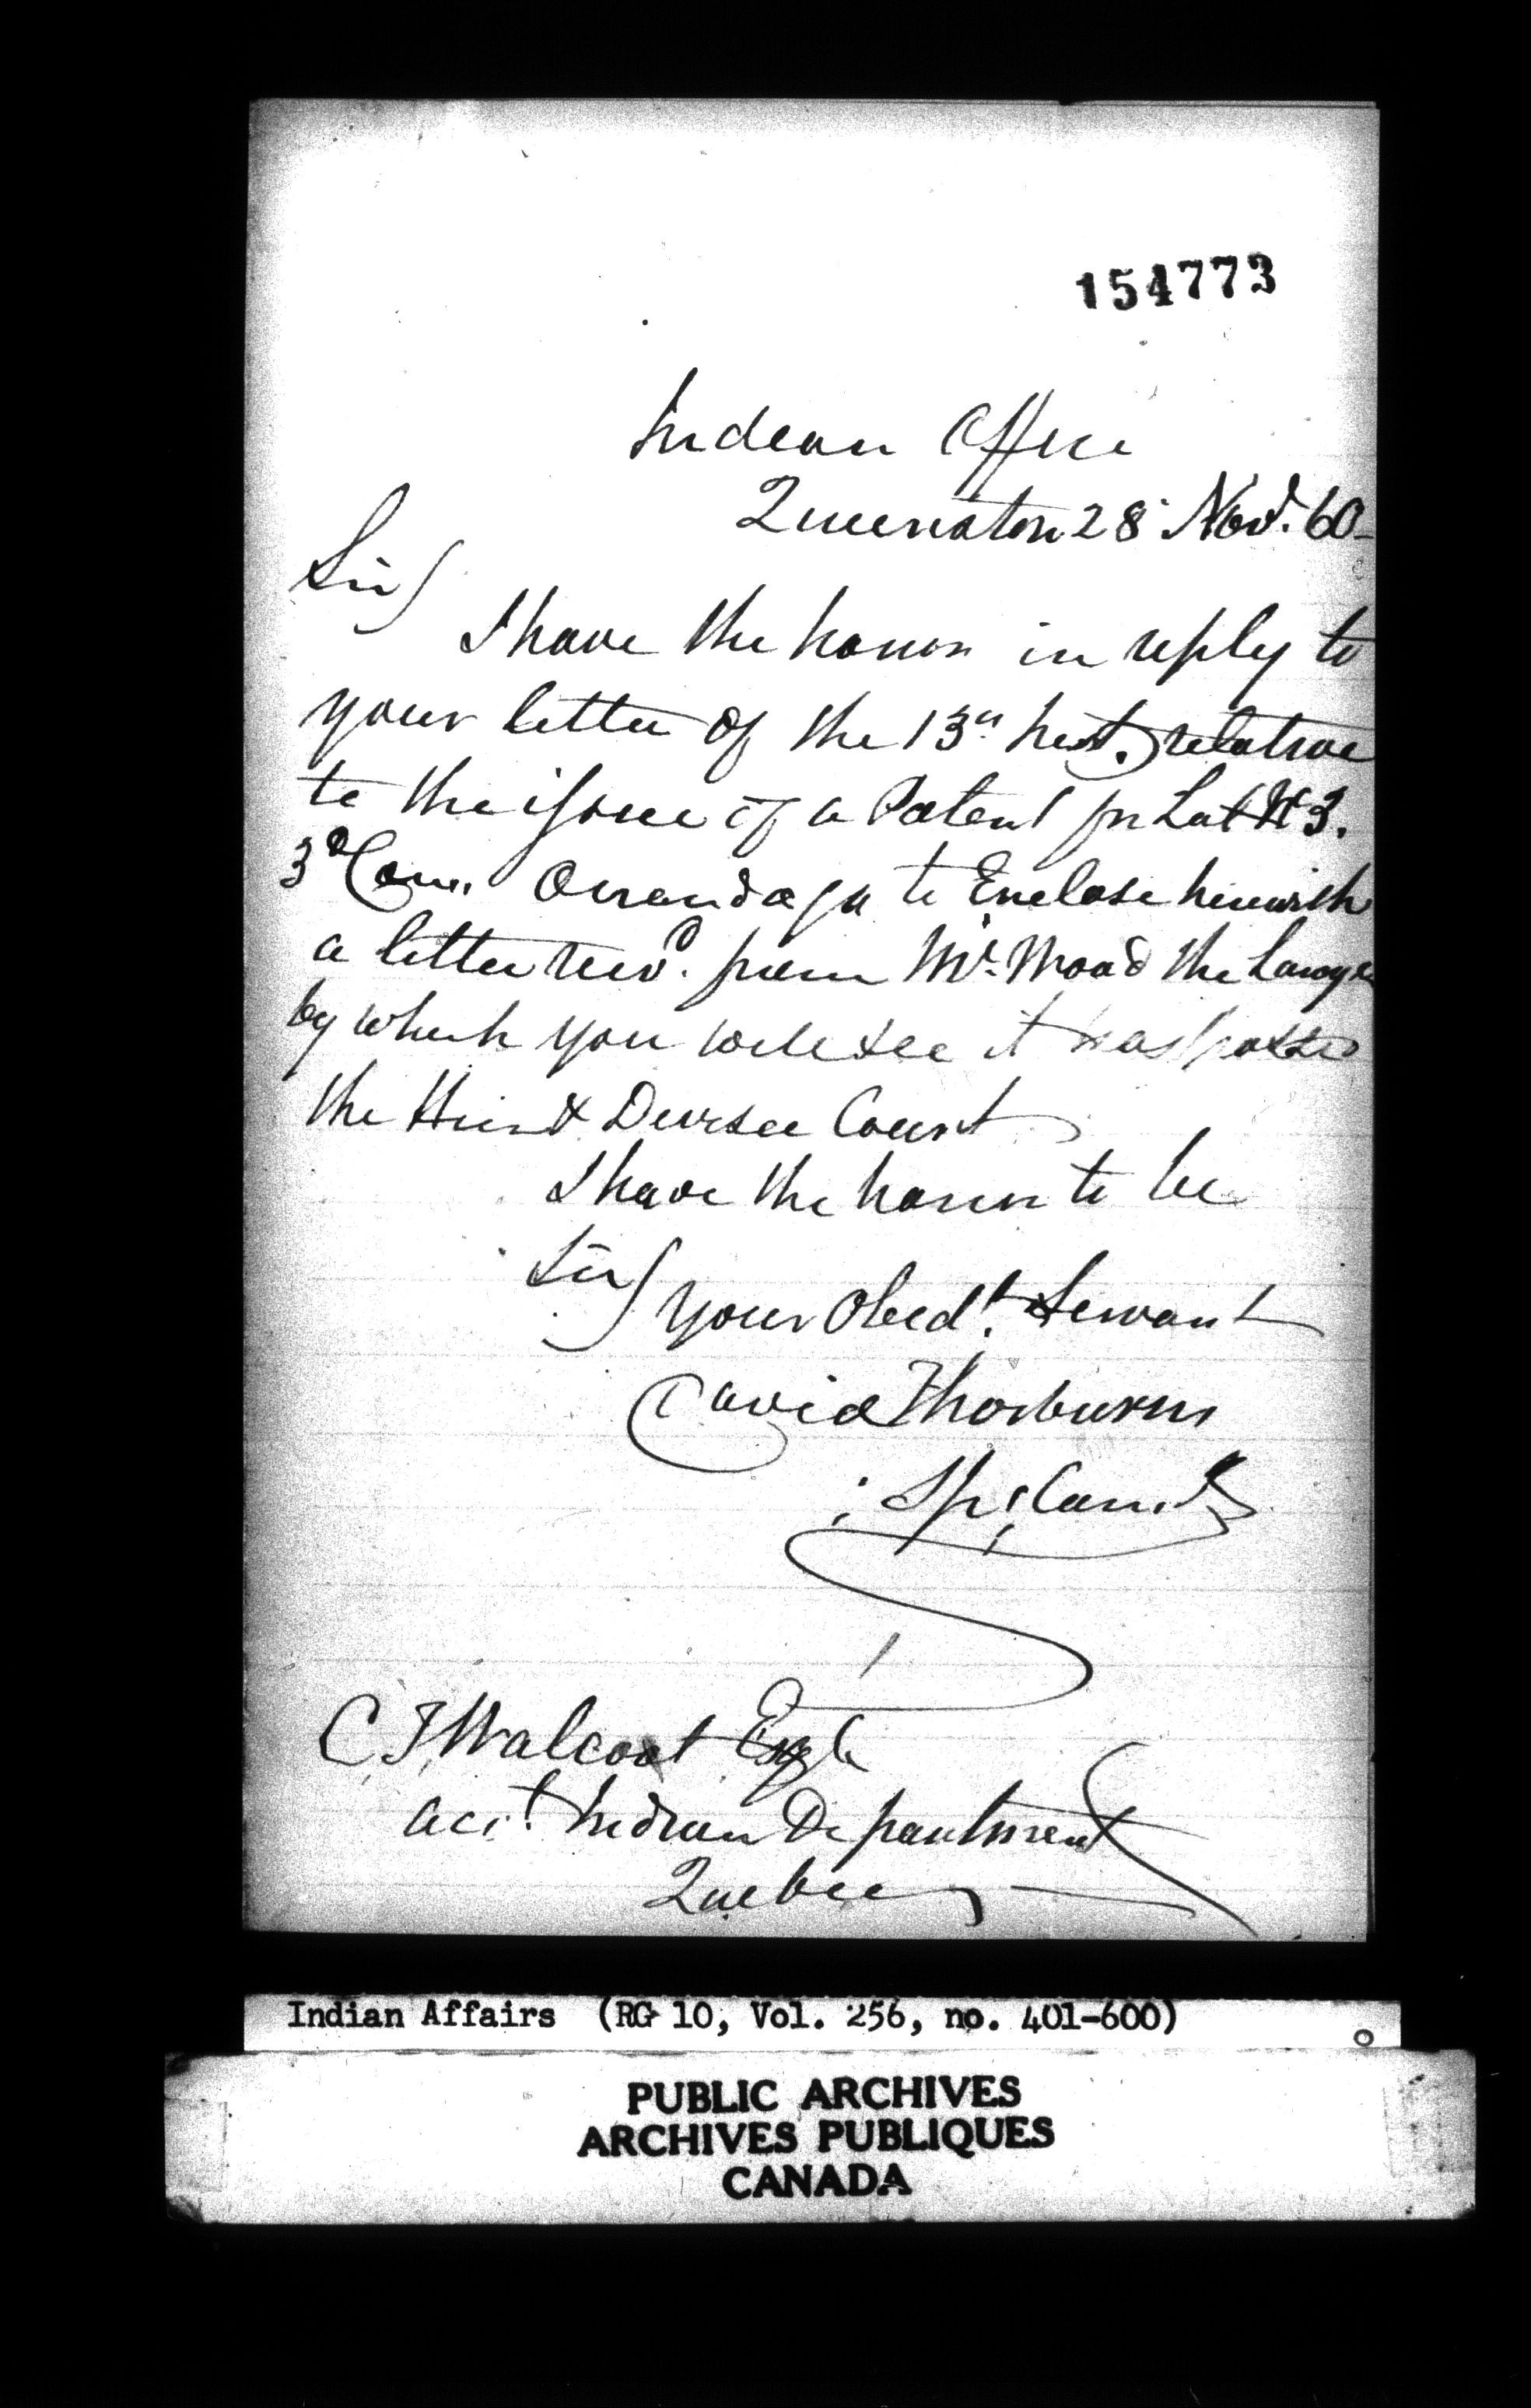 154773
Indian Office
Queenston 28 Novr. 60
Sir
I have the honor in reply to
your letter of the 13th Inst. relative
to the issue of a Patent for Lot No 3.
3d Con. Onondaga to Enclose herewith
a letter recd. from Mr. Wood the Lawyer
by which you will see it has passed
the Heir & Devisee Court
I have the honor to be
Sir
your Obedt. Servant
David Thorburn
Spl. Comr.
C T Walcot Esqr
Acct. Indian Department
Quebec
Indian Affairs (RG 10, Vol. 256, no. 401-600)
PUBLIC ARCHIVES
ARCHIVES PUBLIQUES
CANADA